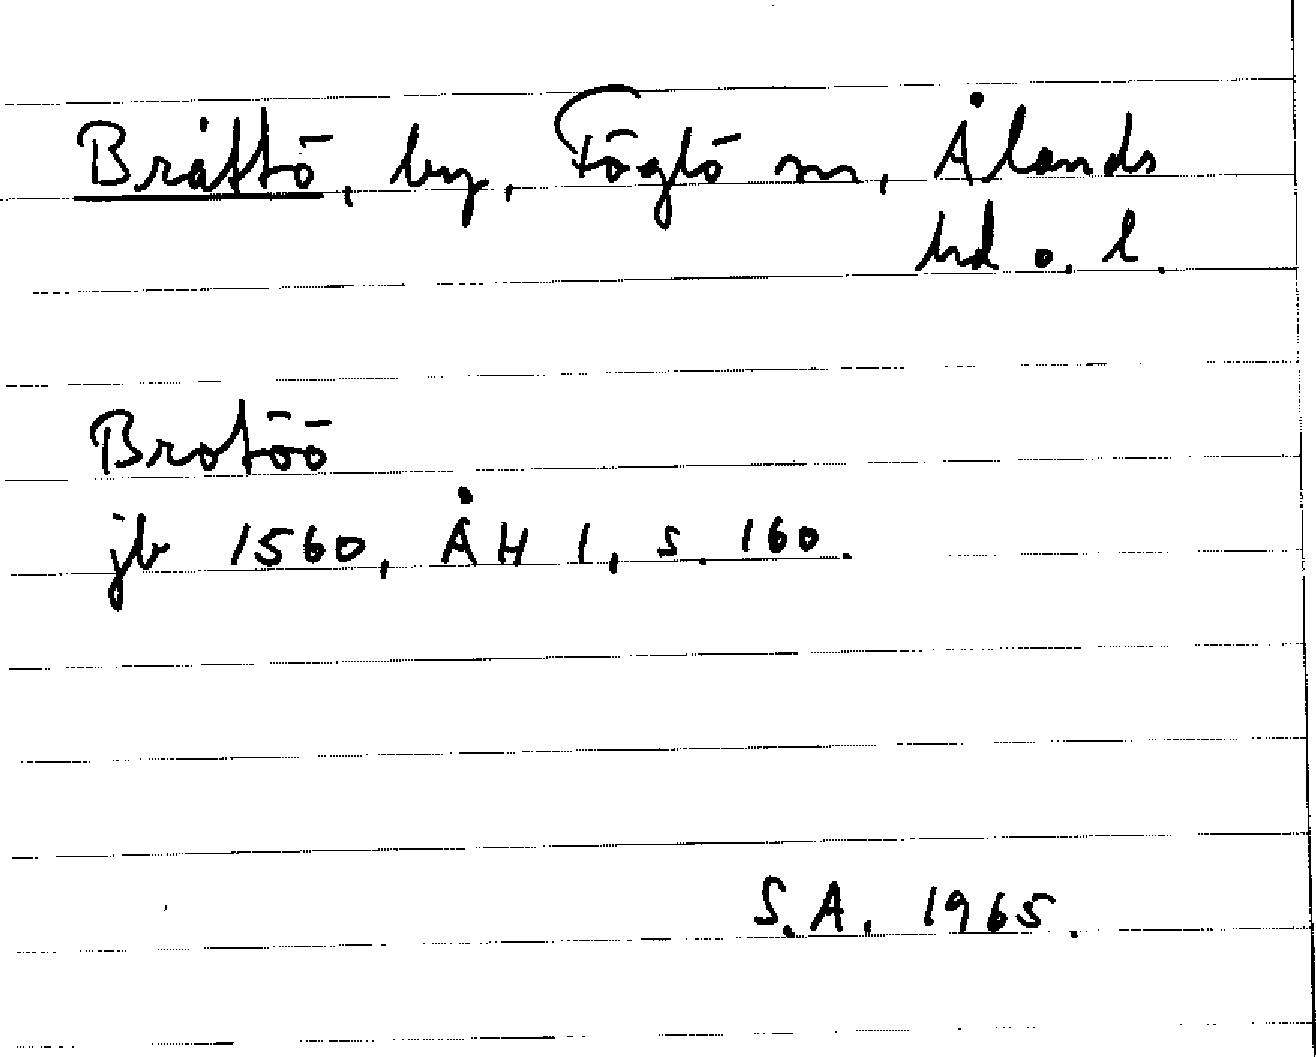 Bråttö, by, Föglö sn, Ålands
hd o. l.
Brotöö
jb 1560, ÅH I, s. 160.
S.A. 1965.